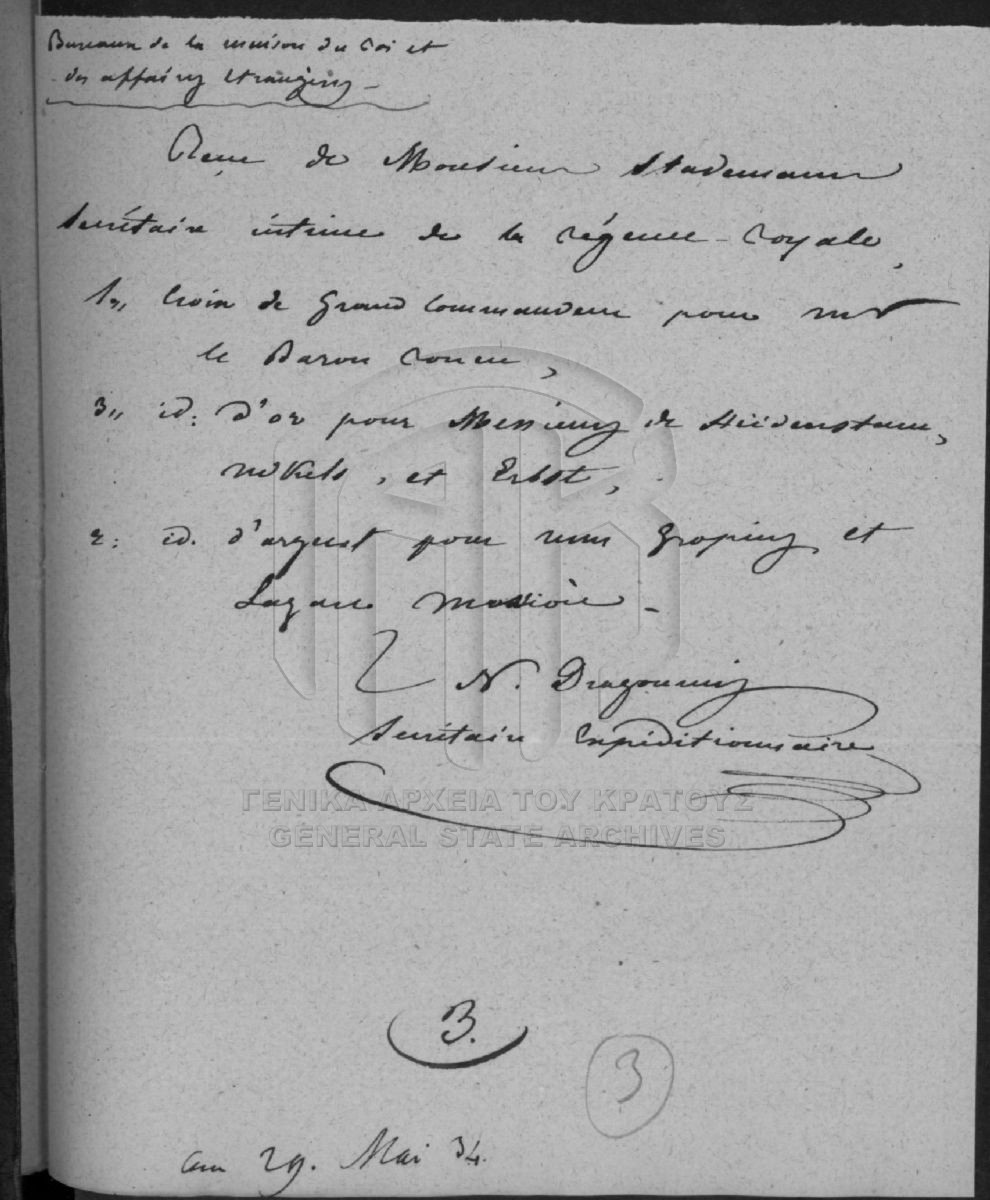 Bureaux de la maison du roi et
des affaires etrangères –
Reçu de Monsieur Stademann
Secrétaire intime de la régence royale,
1,, Croix de Grand Commandeur pour mr
le Baron Rouen,
3,, id: d'or pour Messieurs de Heidenstam,
et Erbst,
2: id. d'argent pour mms Gropius et
Lazare
N. Dragoumis
Secrétaire Expéditionnaire
ΓΕΝΙΚΑ ΑΡΧΕΙΑ ΤΟΥ ΚΡΑΤΟΥΣ
GENERAL STATE ARCHIVES
3.
3
am 29. Mai 34.